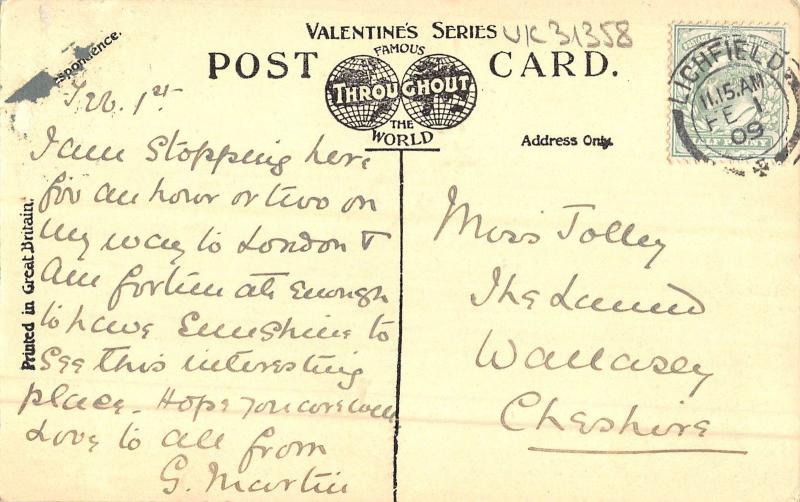 VALENTINE'S SERIES
UK31358
FAMOUS
POST CARD.
THROUGHOUT
THE
WORLD
spondence.
Address Only.
Printed in Great Britain.
LICHFIELD
11.15.AM
FE 1
09
Feb. 1st.
I am stopping here
for an hour or two on
my way to London &
am fortunate enough
to have sunshine to
see this interesting
place. Hope you are well
Love to all from
G. Martin
Miss Tolley
The
Wallasey
Cheshire